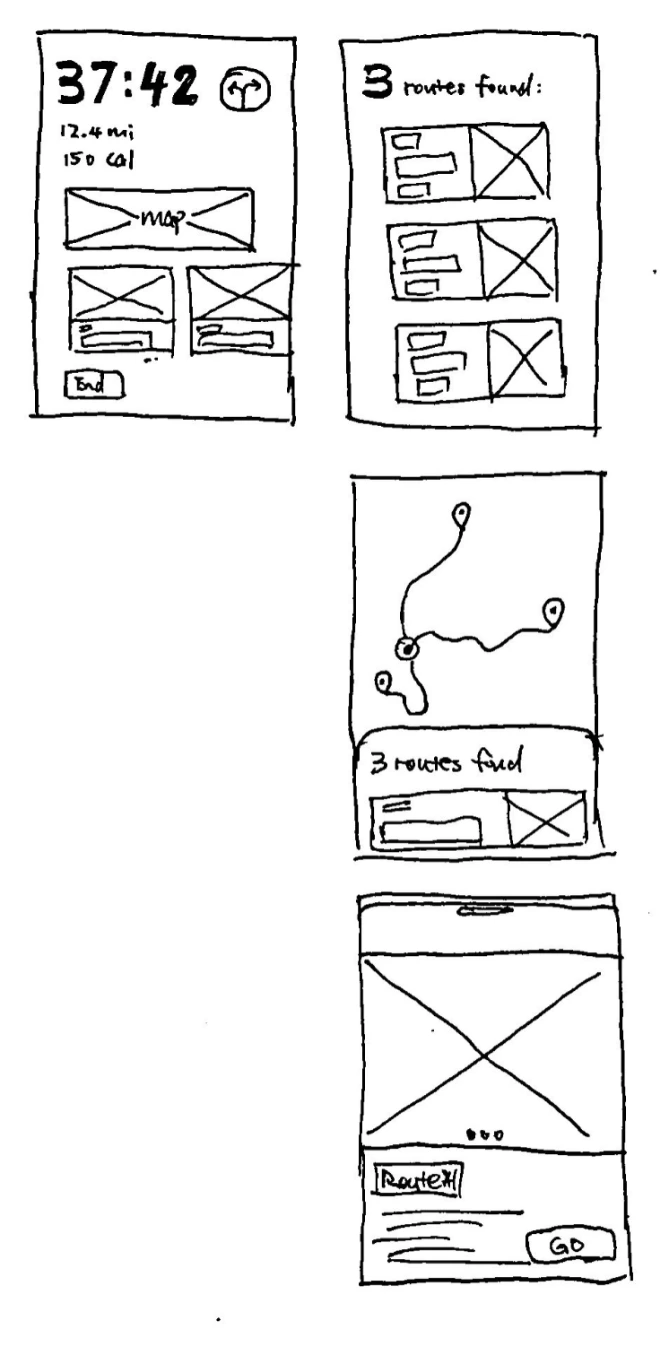 37:42
12.4 mi
150 cal
map
End
3 routes found:
3 routes find
Route#1
GO